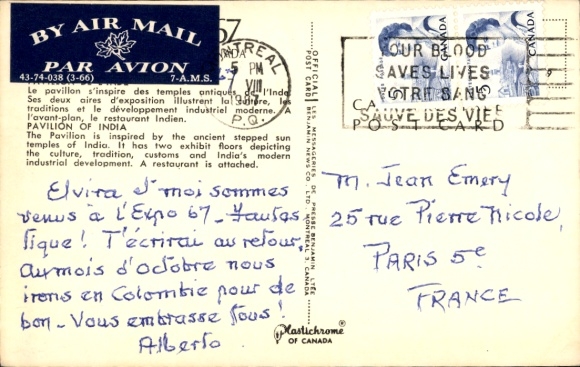 BY AIR MAIL
PAR AVION
43-74-038 (3-66) 7-A.M.S.
67
MONTREAL
5 PM
VIII
P.Q.
CANADA
CANADA
5
5
YOUR BLOOD
SAVES LIVES
VOTRE SANG
SAUVE DES VIES
POST CARD
Le pavillon s'inspire des temples antiques de l'Inde.
Ses deux aires d'exposition illustrent la culture, les
traditions et le développement industriel moderne. A
l'avant-plan, le restaurant Indien.
PAVILION OF INDIA
The Pavilion is inspired by the ancient stepped sun
temples of India. It has two exhibit floors depicting
the culture, tradition, customs and India's modern
industrial development. A restaurant is attached.
Elvira et moi sommes
venus à l'Expo 67_ Fantas
tique! T'écrirai au retour.
Au mois d'Octobre nous
irons en Colombie pour de
bon_ Vous embrasse tous!
Alberto
OFFICIAL POST CARD
LES MESSAGERIES DE PRESSE BENJAMIN LTÉE
BENJAMIN NEWS CO., LTD. MONTREAL 3, CANADA
M. Jean Emery
25 rue Pierre Nicole,
PARIS 5e
FRANCE
Plastichrome®
OF CANADA